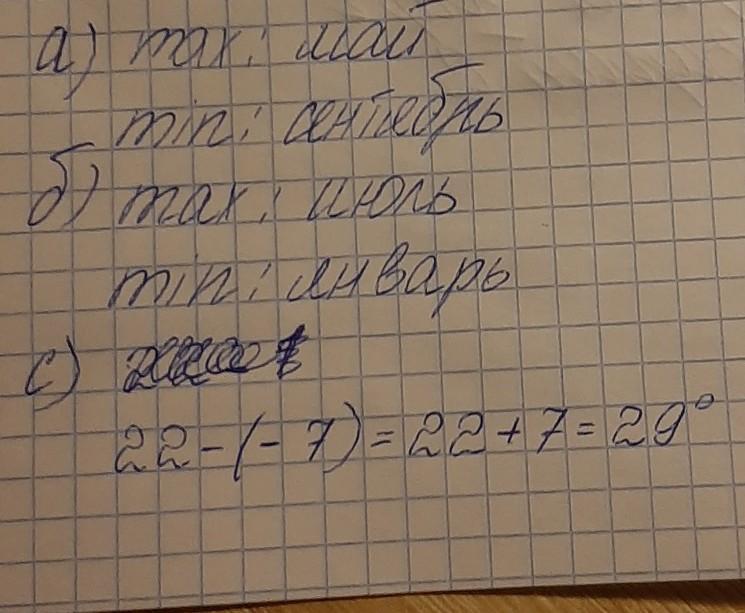 а) max: май
min: сентябрь
б) max: июль
min: январь
с)
22-(-7)=22+7=29°